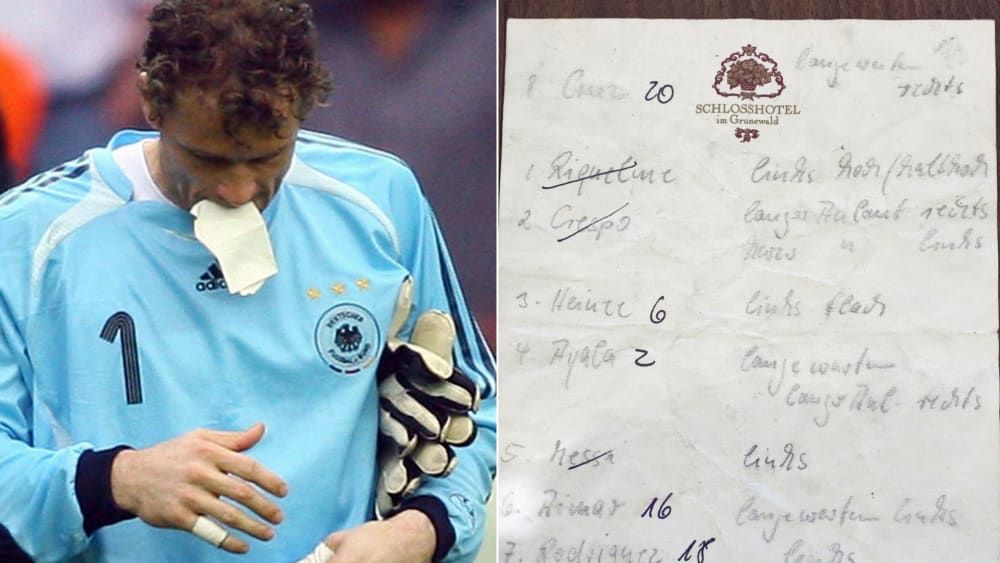 adidas
1
DEUTSCHER
FUSSBALL-BUND
SCHLOSSHOTEL
im Grunewald
lange warten
rechts
Cruz 20
1. Riquelme links hoch/halbhoch
2. Crespo langer Anlauf rechts
kurz " links
3. Heinze 6 links flach
4. Ayala 2 lange warten
langer Anl. rechts
5. Messi links
6. Aimar 16 lange warten links
7. Rodriguez 18 links